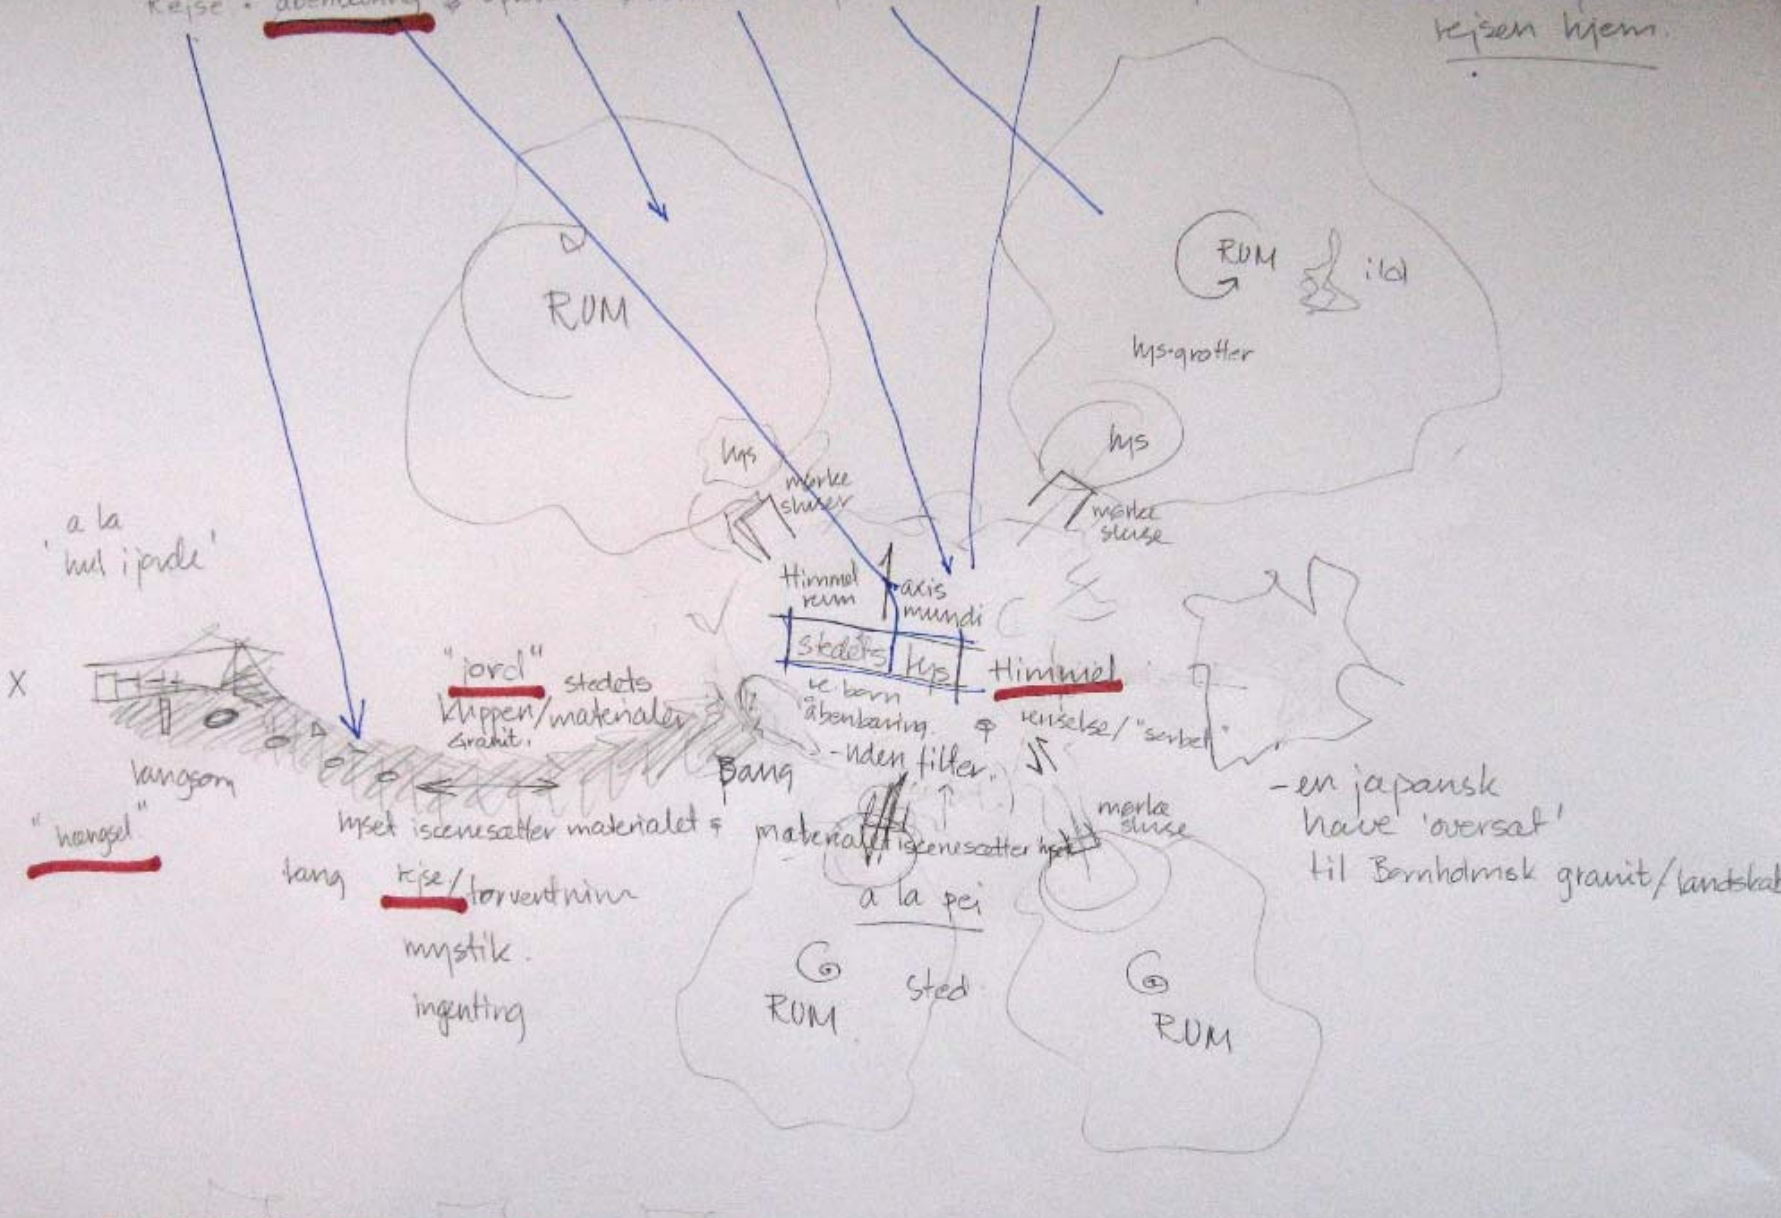 Rejse · åbenbaring &
rejsen hjem.
RUM
RUM
ild
lys-grotter
lys
lys
mørke
sluser
mørke
sluse
a la
'hul i jorde'
Himmel
rum
axis
mundi
stedets lys
"jord"
stedets
klippen/materialer
Granit.
Himmel
åbenbaring
renselse/"sorbet"
-uden filter.
X
langsom
Bang
"hængsel"
lyset iscenesætter materialet &
materialet iscenesætter lyset
mørke
sluse
-en japansk
have 'oversat'
til Bornholmsk granit/landskab
lang
rejse/
forventning
a la pei
mystik.
ingenting
RUM
sted
RUM